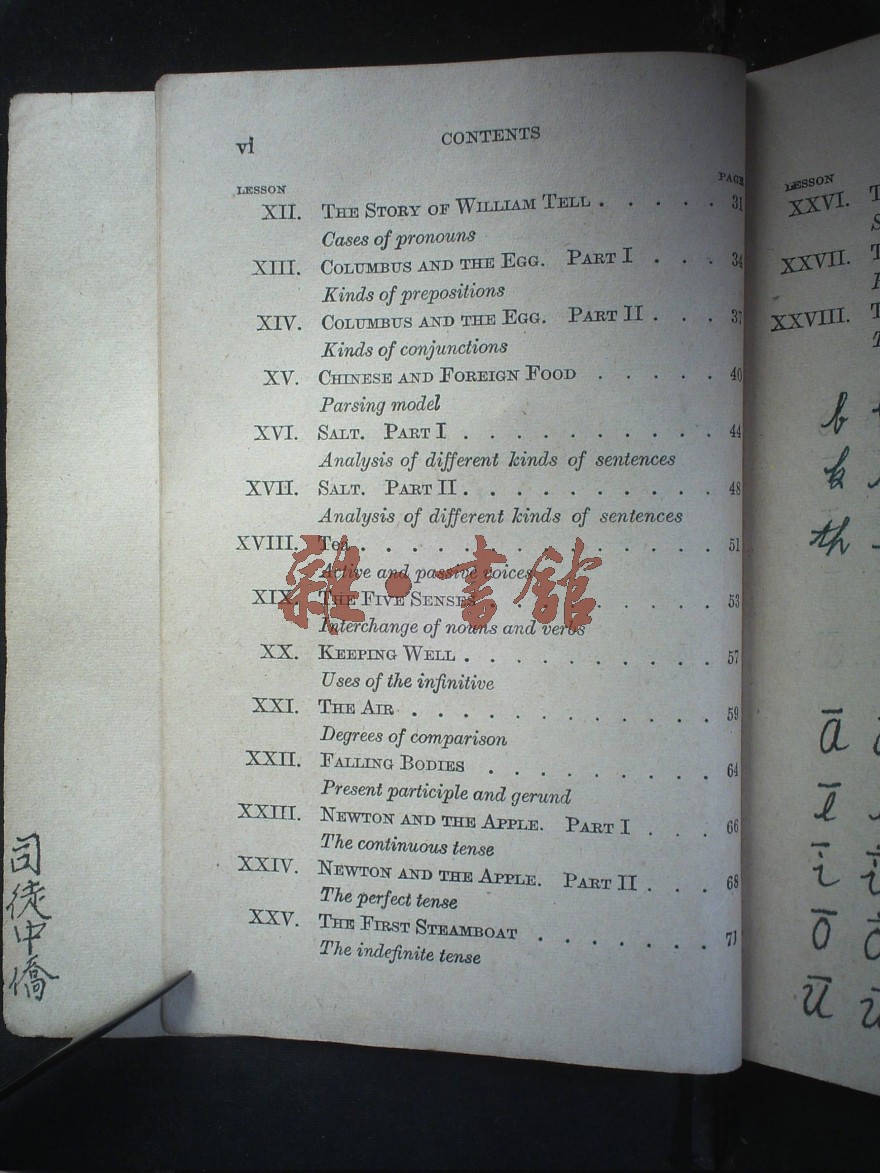 vi
CONTENTS
LESSON PAGE
XII. THE STORY OF WILLIAM TELL . . . . . 31
Cases of pronouns
XIII. COLUMBUS AND THE EGG. PART I . . . 34
Kinds of prepositions
XIV. COLUMBUS AND THE EGG. PART II . . . 37
Kinds of conjunctions
XV. CHINESE AND FOREIGN FOOD . . . . . 40
Parsing model
XVI. SALT. PART I . . . . . . . . . . 44
Analysis of different kinds of sentences
XVII. SALT. PART II . . . . . . . . . . 48
Analysis of different kinds of sentences
XVIII. Tea . . . . . . . . . . . . . . 51
Active and passive voices
XIX. THE FIVE SENSES . . . . . . . . . 53
Interchange of nouns and verbs
XX. KEEPING WELL . . . . . . . . . . 57
Uses of the infinitive
XXI. THE AIR . . . . . . . . . . . . 59
Degrees of comparison
XXII. FALLING BODIES . . . . . . . . . 64
Present participle and gerund
XXIII. NEWTON AND THE APPLE. PART I . . . 66
The continuous tense
XXIV. NEWTON AND THE APPLE. PART II . . . 68
The perfect tense
XXV. THE FIRST STEAMBOAT . . . . . . . 71
The indefinite tense
雜·書館
司徒中僑
LESSON
XXVI.
XXVII.
XXVIII.
b
k
th
ā
ē
ī
ō
ū